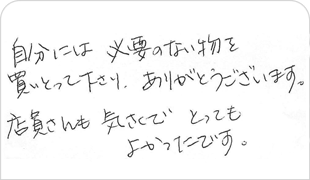 自分には 必要のない物を
買いとって下さり、ありがとうございます。
店員さんも 気さくで とっても
よかったです。